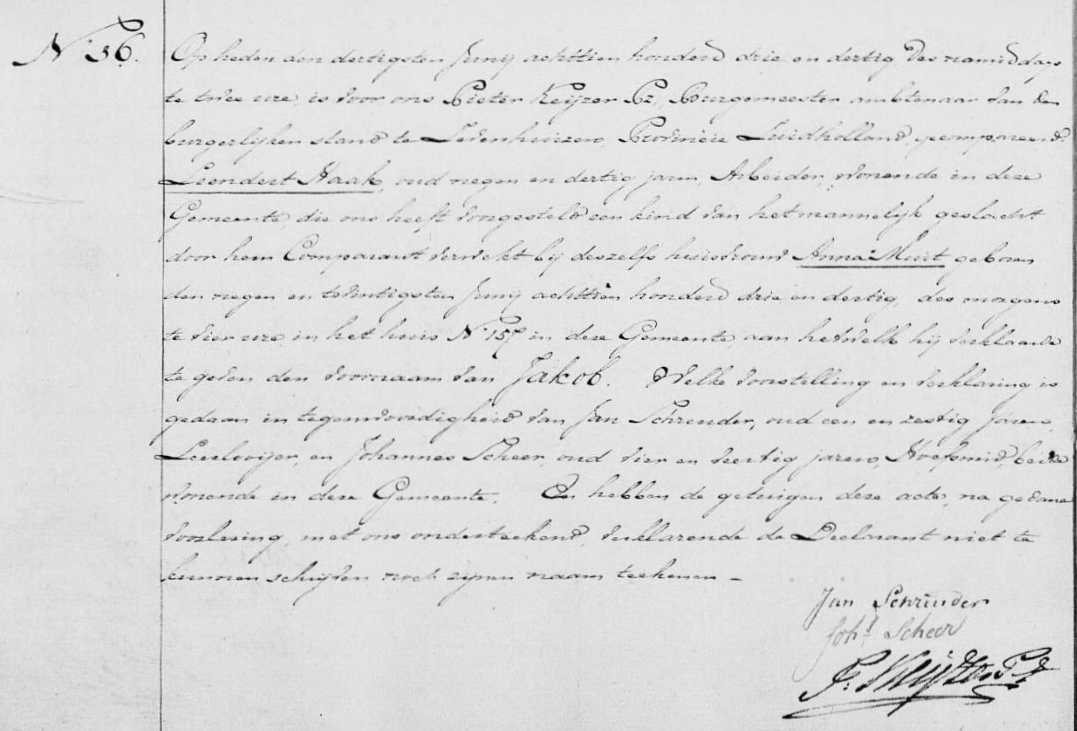 N.º 36. Op heden den dertigsten Junij achttien honderd drie en dertig des namiddags
te twee ure, is voor ons Pieter Keijzer Pz., Burgemeester ambtenaar van den
burgerlijken stand te Zevenhuizen, Provincie Zuidholland, gecompareerd
Leendert Haak, oud negen en dertig jaren, Arbeider, wonende in deze
Gemeente, die ons heeft voorgesteld een kind van het mannelijk geslacht
door hem Comparant verwekt bij deszelfs huisvrouw Anna Muit geboren
den negen en twintigsten Junij achttien honderd drie en dertig, des morgens
te vier ure in het huis N.º 157 in deze Gemeente, aan hetwelk hij verklaarde
te geven den voornaam van Jakob. Welke voorstelling en verklaring is
gedaan in tegenwoordigheid van Jan Schreuder, oud een en zestig jaren,
en Johannes Scheer, oud vier en veertig jaren, Hoefsmid, beide
wonende in deze Gemeente. En hebben de getuigen deze acte, na gedane
voorlezing, met ons onderteekend, verklarende de Declarant niet te
kunnen schrijven noch zijnen naam teekenen –
Jan Schreuder
Johs Scheer
P. Keijzer Pz